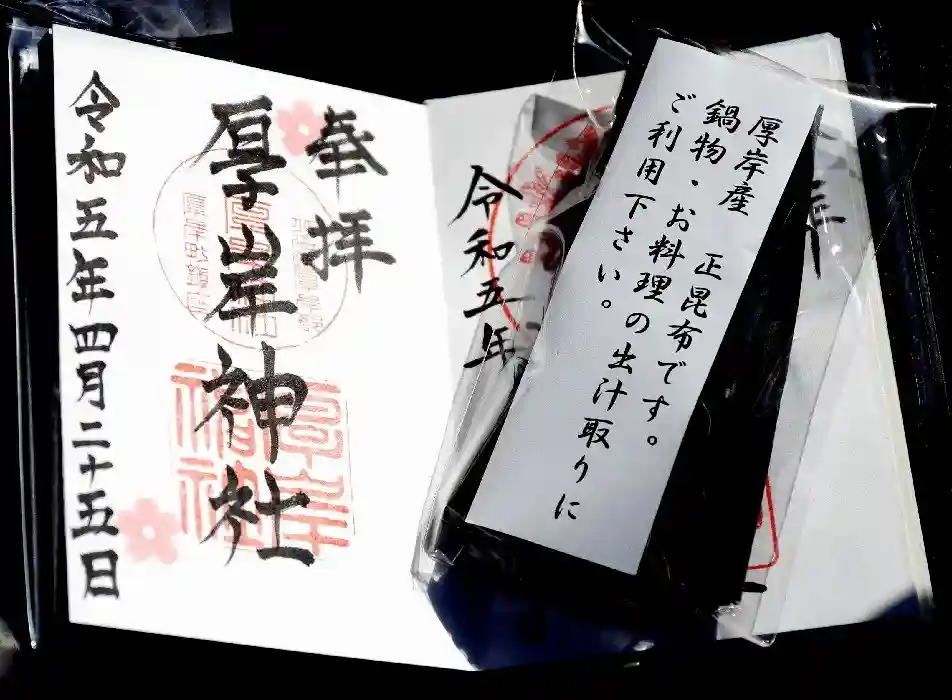 奉拝
厚岸神社
令和五年四月二十五日
令和五年
厚岸産　正昆布です。
鍋物・お料理の出汁取りに
ご利用下さい。